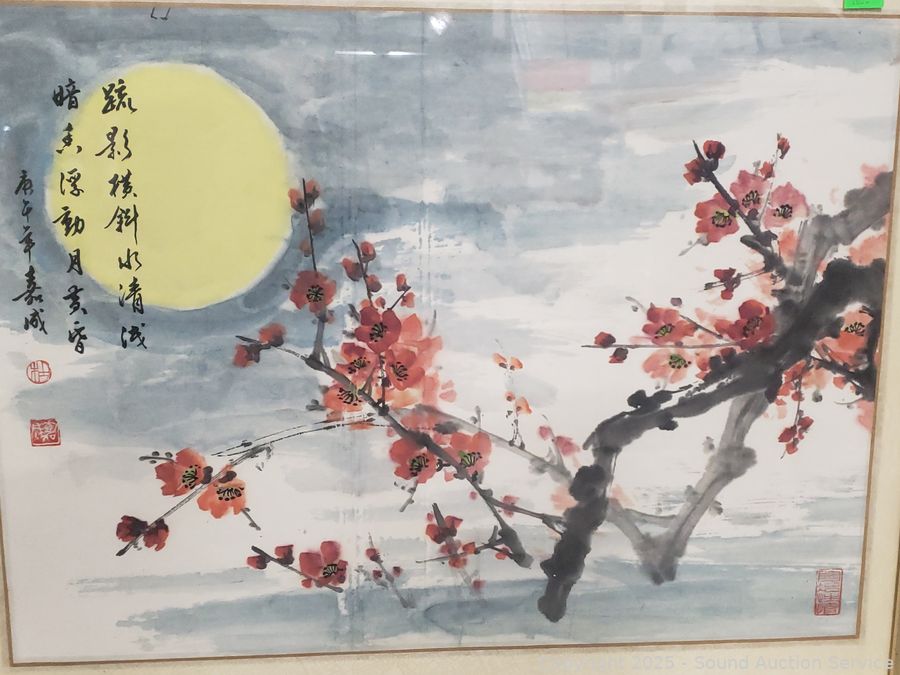 疏影横斜水清浅
暗香浮動月黄昏
庚午年嘉成
Copyright 2025 - Sound Auction Service